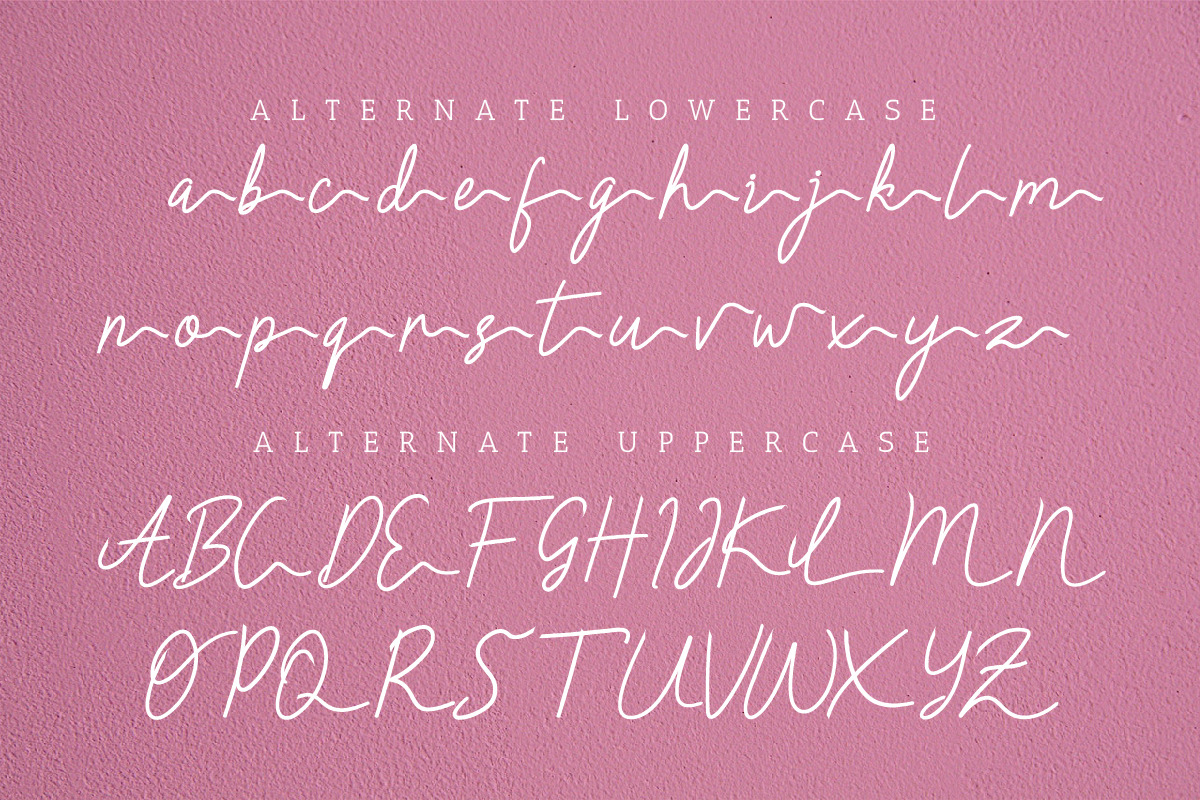 ALTERNATE LOWERCASE
abcdefghijklm
nopqrstuvwxyz
ALTERNATE UPPERCASE
ABCDEFGHIJKLMN
OPQRSTUVWXYZ